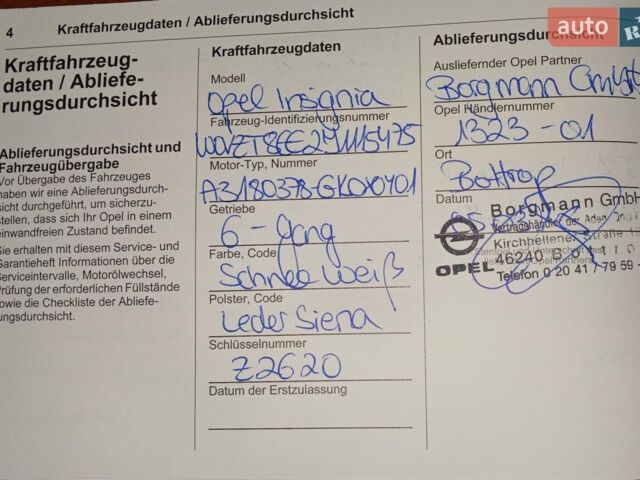 4 Kraftfahrzeugdaten / Ablieferungsdurchsicht
auto
Kraftfahrzeug-
daten / Abliefe-
rungsdurchsicht
Ablieferungsdurchsicht und
Fahrzeugübergabe
Vor Übergabe des Fahrzeuges
haben wir eine Ablieferungsdurch-
sicht durchgeführt, um sicherzu-
stellen, dass sich Ihr Opel in einem
einwandfreien Zustand befindet.
Sie erhalten mit diesem Service- und
Garantieheft Informationen über die
Serviceintervalle, Motorölwechsel,
Prüfung der erforderlichen Füllstände
sowie die Checkliste der Abliefe-
rungsdurchsicht.
Kraftfahrzeugdaten
Modell
Opel Insignia
Fahrzeug-Identifizierungsnummer
Motor-Typ, Nummer
Getriebe
6-Gang
Farbe, Code
Schneeweiß
Polster, Code
Leder Siena
Schlüsselnummer
Z2620
Datum der Erstzulassung
Ablieferungsdurchsicht
Ausliefernder Opel Partner
Borgmann GmbH
Opel Händlernummer
1323-01
Ort
Bottrop
Datum
Borgmann GmbH
Vertragshändler der Adam Opel
Kirchhellener Straße
46240 Bottrop
OPEL
Telefon 0 20 41 / 79 59 -